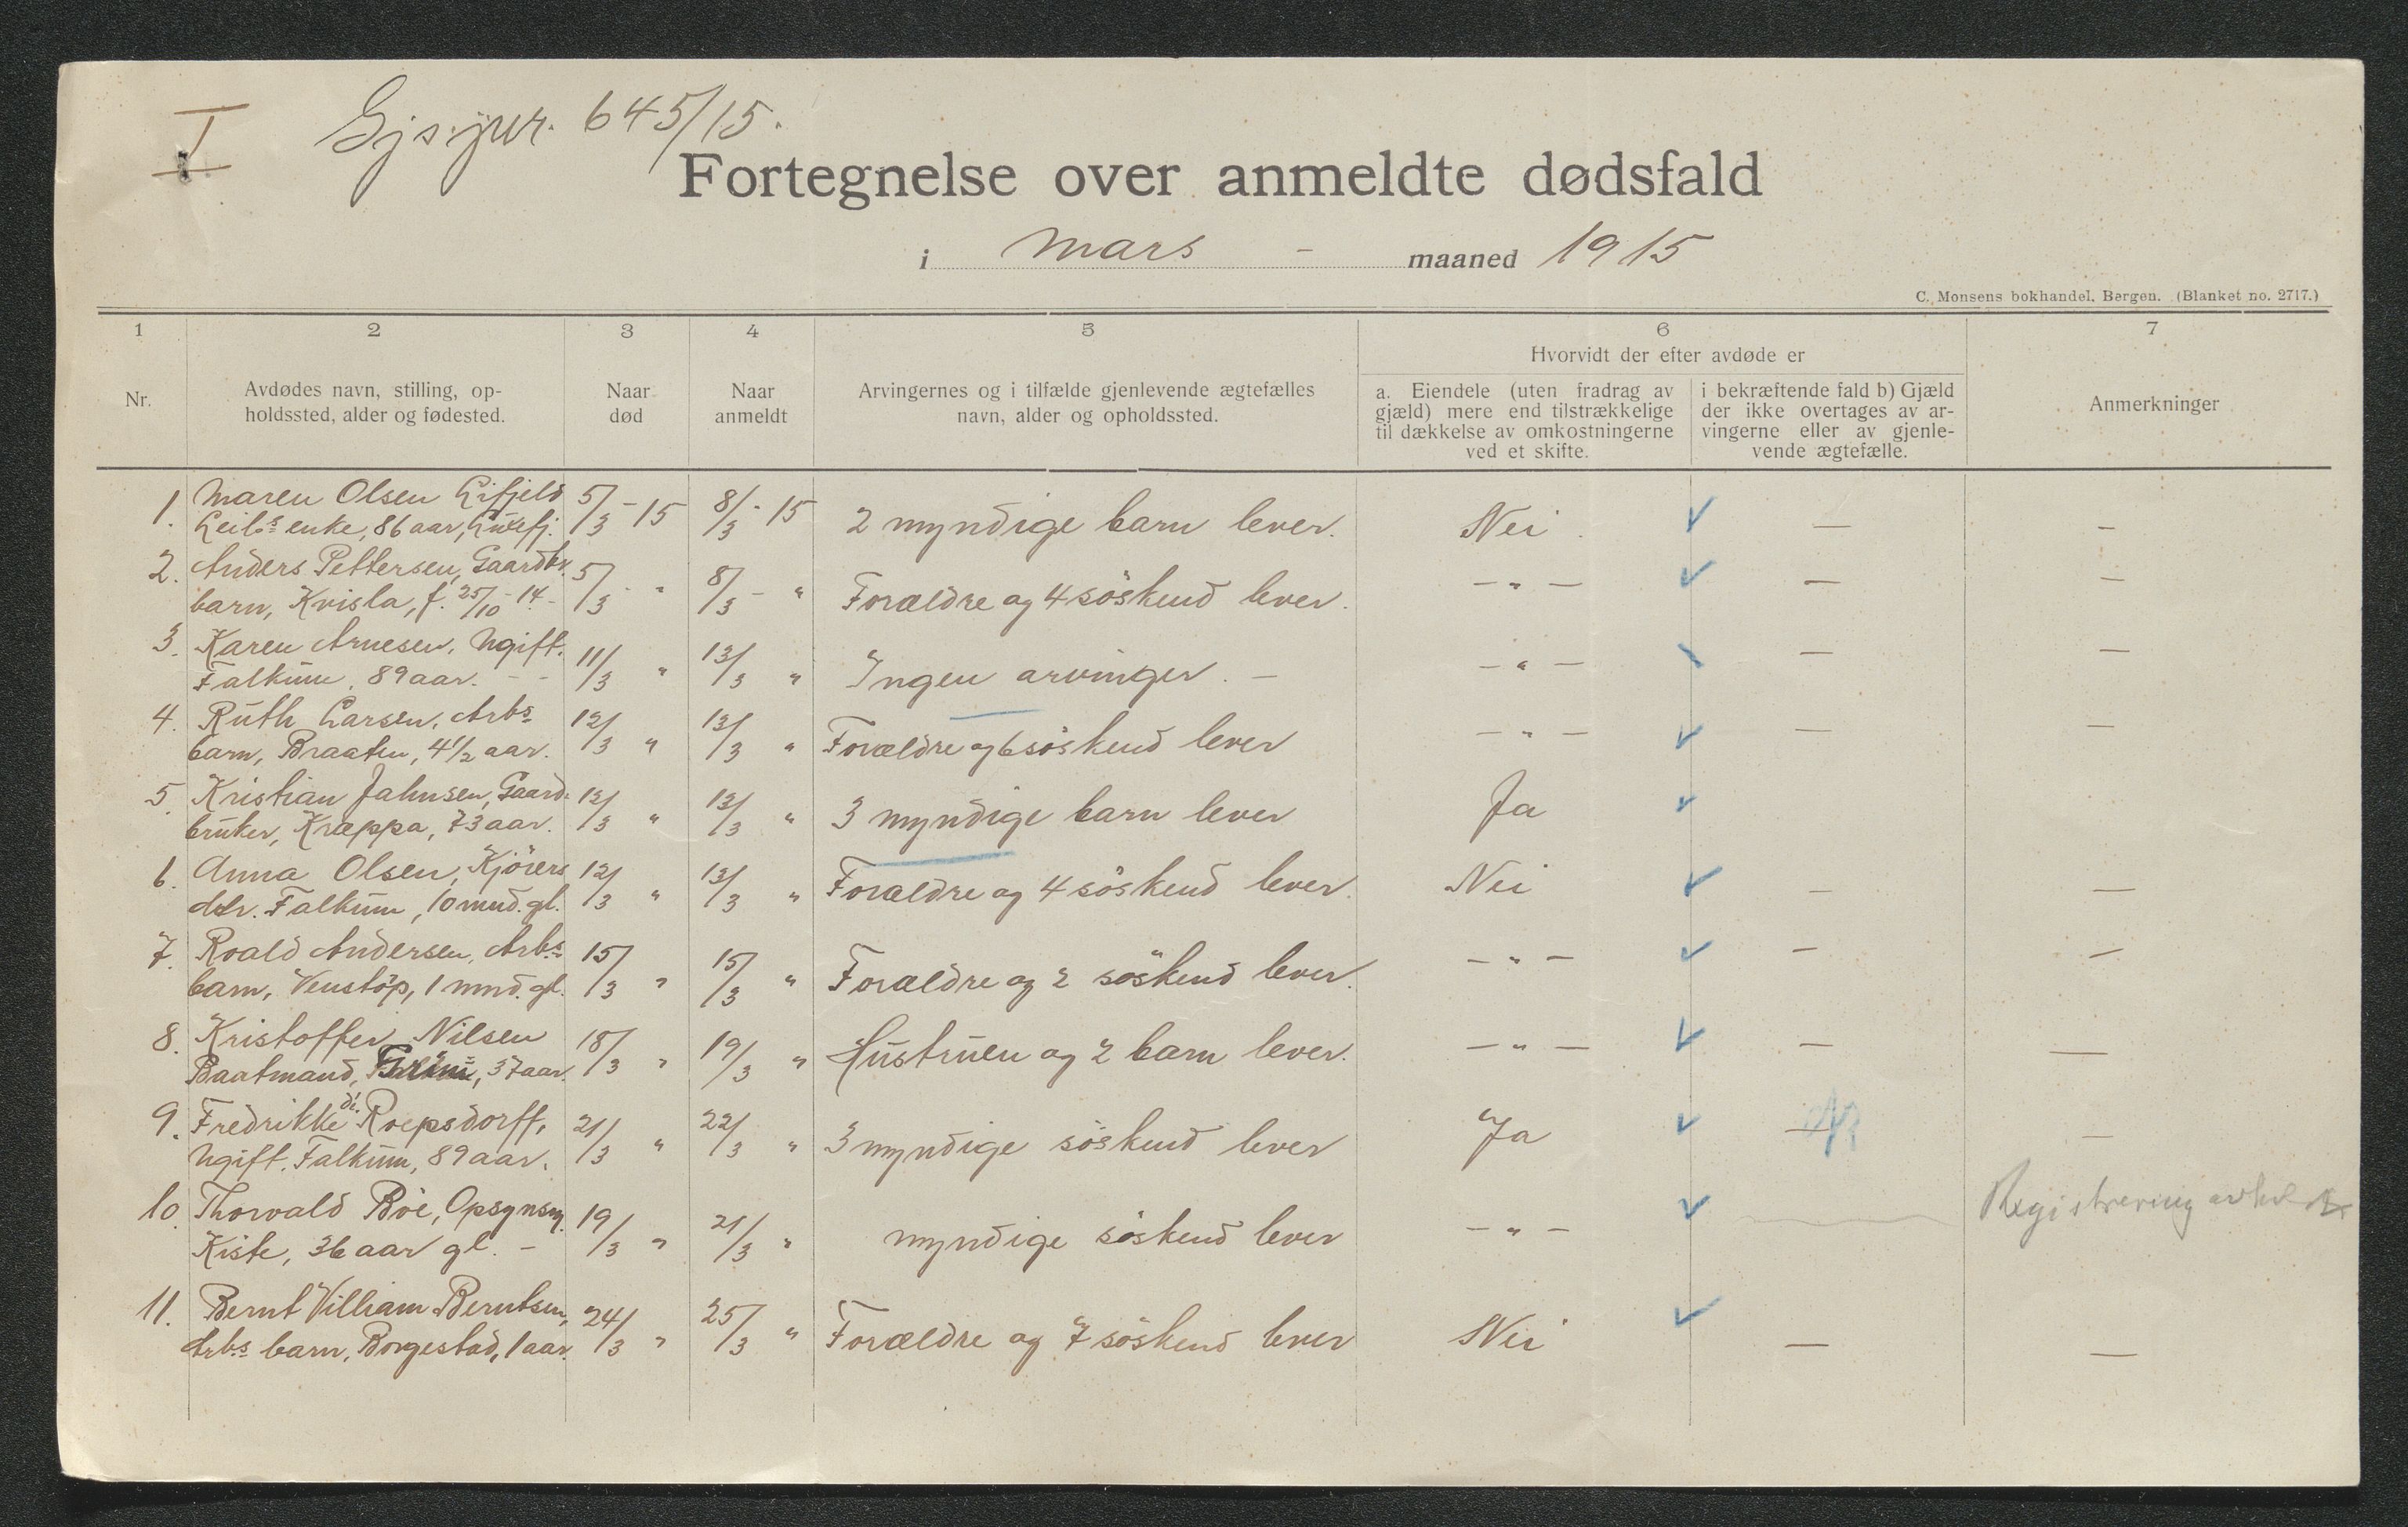 I
645/15.
Fortegnelse over anmeldte dødsfald
i mars - maaned 1915
C. Monsens bokhandel, Bergen. (Blanket no. 2717.)
1 2 3 4 5 6 7
Nr.
Avdødes navn, stilling, op-
holdssted, alder og fødested.
Naar
død
Naar
anmeldt
Arvingernes og i tilfælde gjenlevende ægtefælles
navn, alder og opholdssted.
Hvorvidt der efter avdøde er
a. Eiendele (uten fradrag av
gjæld) mere end tilstrækkelige
til dækkelse av omkostningerne
ved et skifte.
i bekræftende fald b) Gjæld
der ikke overtages av ar-
vingerne eller av gjenle-
vende ægtefælle.
Anmerkninger
1. Maren Olsen Lifjeld 5/3 - 15 8/3 - 15 2 myndige barn lever. Nei — –
enke, 86 aar,
2. Anders Pettersen, Gaardbr. 5/3 - " 8/3 - " Forældre og 4 söskend lever. — " — — —
barn, Kvisla, f. 25/10 - 14 -
3. Karen Arnesen. Ugift. 11/3 " 13/3 " Ingen arvinger. — — " — — —
Falkum, 89 aar. - -
4. Ruth Larsen, Arbs 12/3 " 13/3 " Forældre og 6 söskend lever — " — — —
barn, Braaten, 4 1/2 aar.
5. Kristian Jahnsen, Gaard- 12/3 " 13/3 " 3 myndige barn lever Ja
bruker, Kræppa, 73 aar.
6. Anna Olsen, Kjörers 12/3 " 13/3 " Forældre og 4 söskend lever. Nei — —
dtr. Falkum, 10 mnd. gl.
7. Roald Andersen, Arbs 15/3 " 15/3 " Forældre og 2 söskend lever. — " — — —
barn, Venstöp, 1 mnd. gl.
8. Kristoffer Nilsen 18/3 " 19/3 " Hustruen og 2 barn lever. — " — — —
Baatmand, 37 aar.
9. Fredrikke di. Roepsdorff, 21/3 " 22/3 " 3 myndige söskend lever Ja — —
Ugift. Falkum, 89 aar.
10. Thorvald Böe, Opsynsm. 19/3 " 21/3 " myndige söskend lever — " — Registrering
Kiste, 36 aar gl. -
11. Bernt Villiam Berntsen, 24/3 " 25/3 " Forældre og 7 söskend lever Nei — —
Arbs barn, Borgestad, 1 aar.